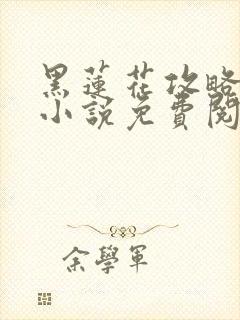 黑蓮花攻略
小說免費閱
余學軍